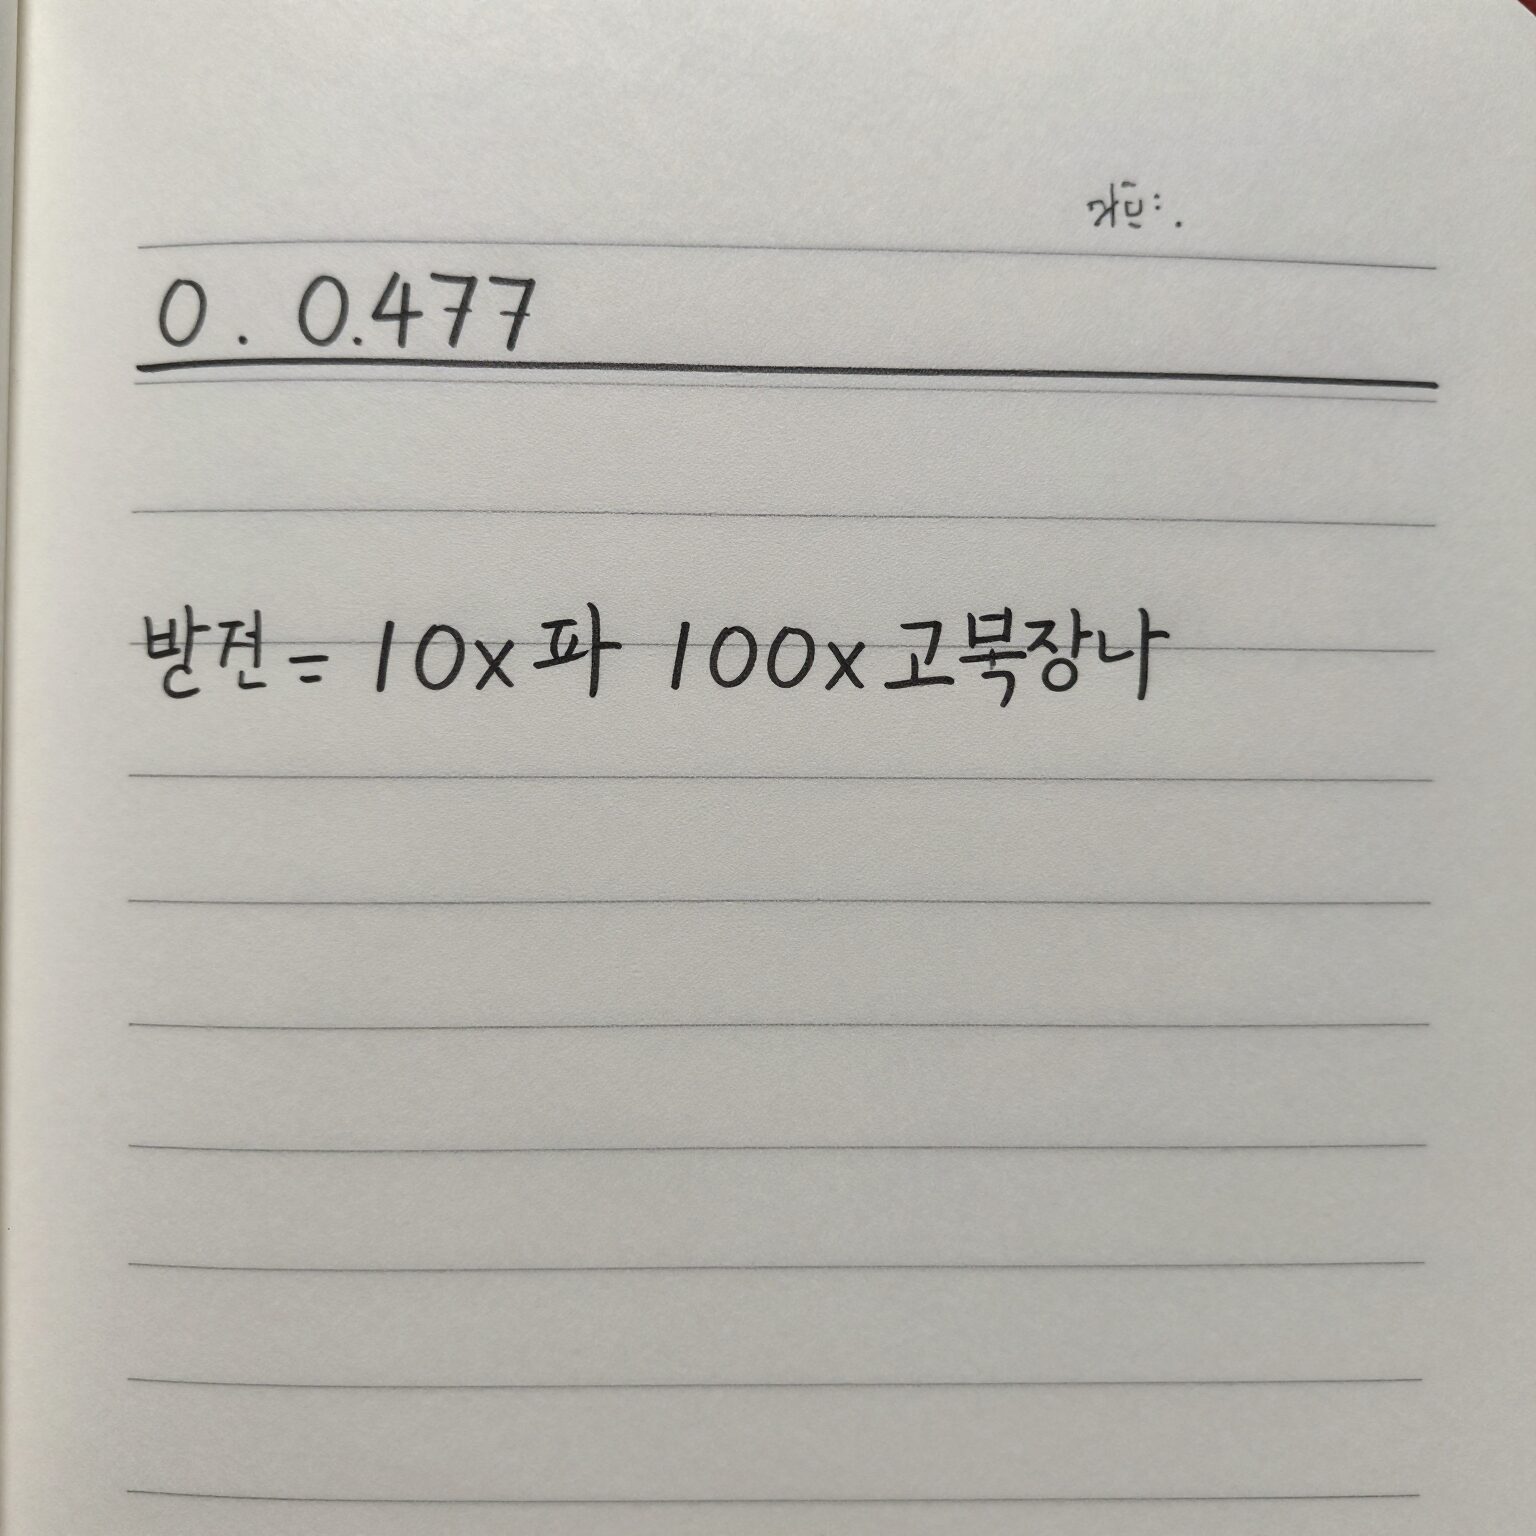 0. 0.477
발견= 10x파 100x고북장나